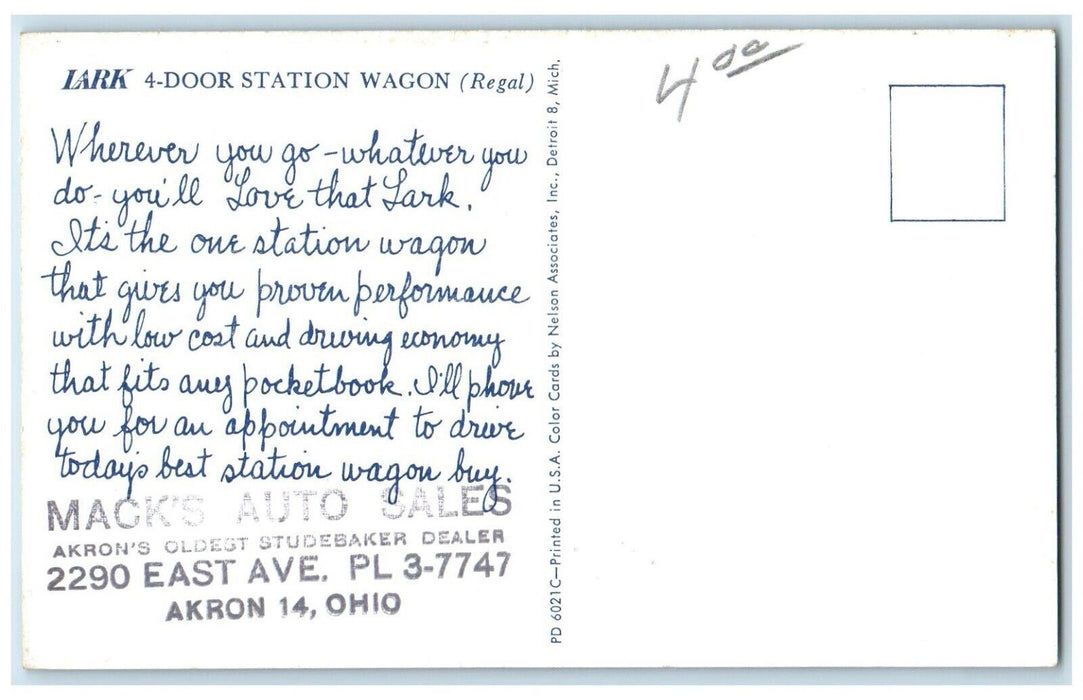 LARK 4-DOOR STATION WAGON (Regal)
Wherever you go - whatever you
do - you'll Love that Lark.
It's the one station wagon
that gives you proven performance
with low cost and driving economy
that fits any pocketbook. I'll phone
you for an appointment to drive
today's best station wagon buy.
MACK'S AUTO SALES
AKRON'S OLDEST STUDEBAKER DEALER
2290 EAST AVE. PL 3-7747
AKRON 14, OHIO
PD 6021C—Printed in U.S.A. Color Cards by Nelson Associates, Inc., Detroit 8, Mich.
4 00